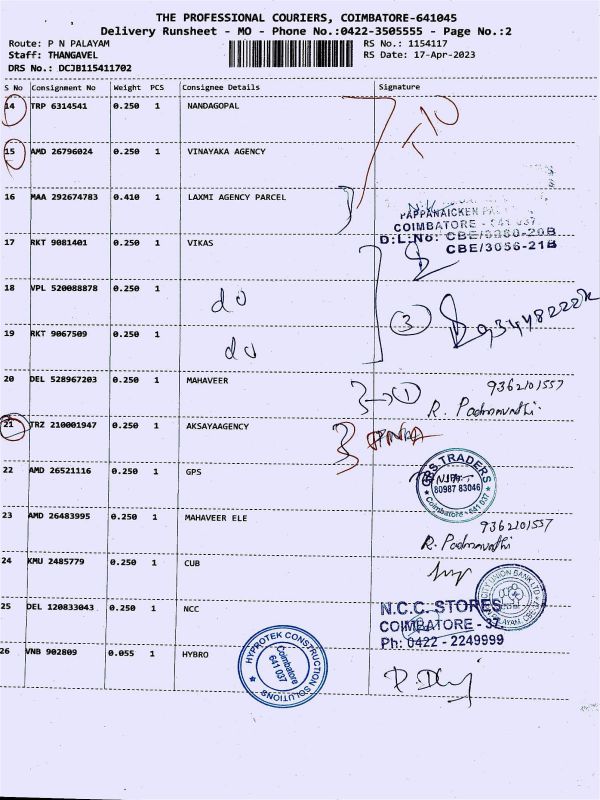 THE PROFESSIONAL COURIERS, COIMBATORE-641045
Delivery Runsheet - MO - Phone No.:0422-3505555 - Page No.:2
Route: P N PALAYAM RS No.: 1154117
Staff: THANGAVEL RS Date: 17-Apr-2023
DRS No.: DCJB115411702
S No Consignment No Weight PCS Consignee Details Signature
14 TRP 6314541 0.250 1 NANDAGOPAL
15 AMD 26796024 0.250 1 VINAYAKA AGENCY
16 MAA 292674783 0.410 1 LAXMI AGENCY PARCEL
PAPPANAICKEN
COIMBATORE - 641 037
D.L.No: CBE/3860-20B
CBE/3056-21B
17 RKT 9081401 0.250 1 VIKAS
18 VPL 520088878 0.250 1 do
3
19 RKT 9067509 0.250 1 do
20 DEL 528967203 0.250 1 MAHAVEER 1 9362101557
R. Padmavathi
21 TRZ 210001947 0.250 1 AKSAYAAGENCY
22 AMD 26521116 0.250 1 GPS
TRADERS
80987 83046
Coimbatore - 641 037
23 AMD 26483995 0.250 1 MAHAVEER ELE 9362101557
R. Padmavathi
24 KMU 2485779 0.250 1 CUB
CITY UNION BANK LTD
25 DEL 120833043 0.250 1 NCC
N.C.C. STORES
COIMBATORE - 37.
Ph: 0422 - 2249999
26 VNB 902809 0.055 1 HYBRO
HYPROTEK CONSTRUCTION SOLUTIONS
Coimbatore
641 037